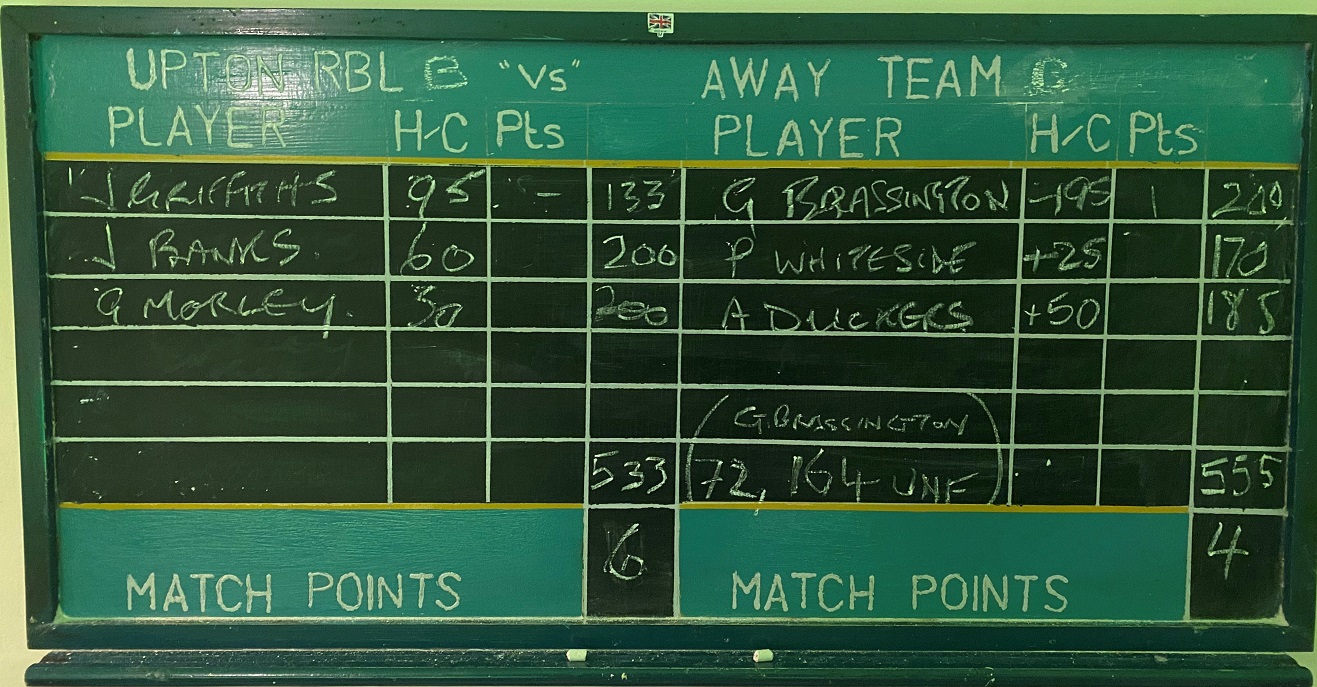 UPTON RBL B "Vs" AWAY TEAM B
PLAYER H/C Pts PLAYER H/C Pts
J GRIFFITHS 95 - 133 G BRASSINGTON -195 1 200
J BANKS. 60 200 P WHITESIDE +25 170
G MORLEY. 30 200 A DUCKERS +50 185
(G.BRASSINGTON
533 72, 164 UNF) 555
6 4
MATCH POINTS MATCH POINTS